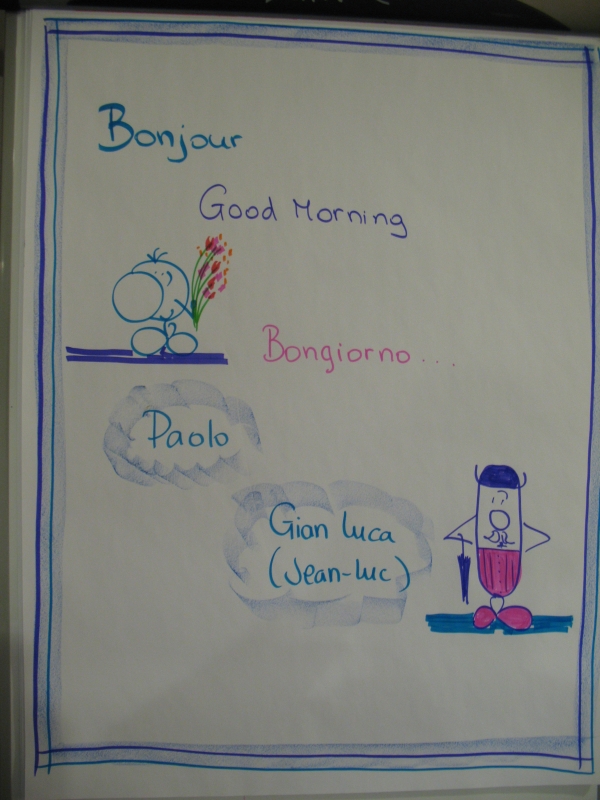 Bonjour
Good Morning
Bongiorno....
Paolo
Gian luca
(Jean-luc)